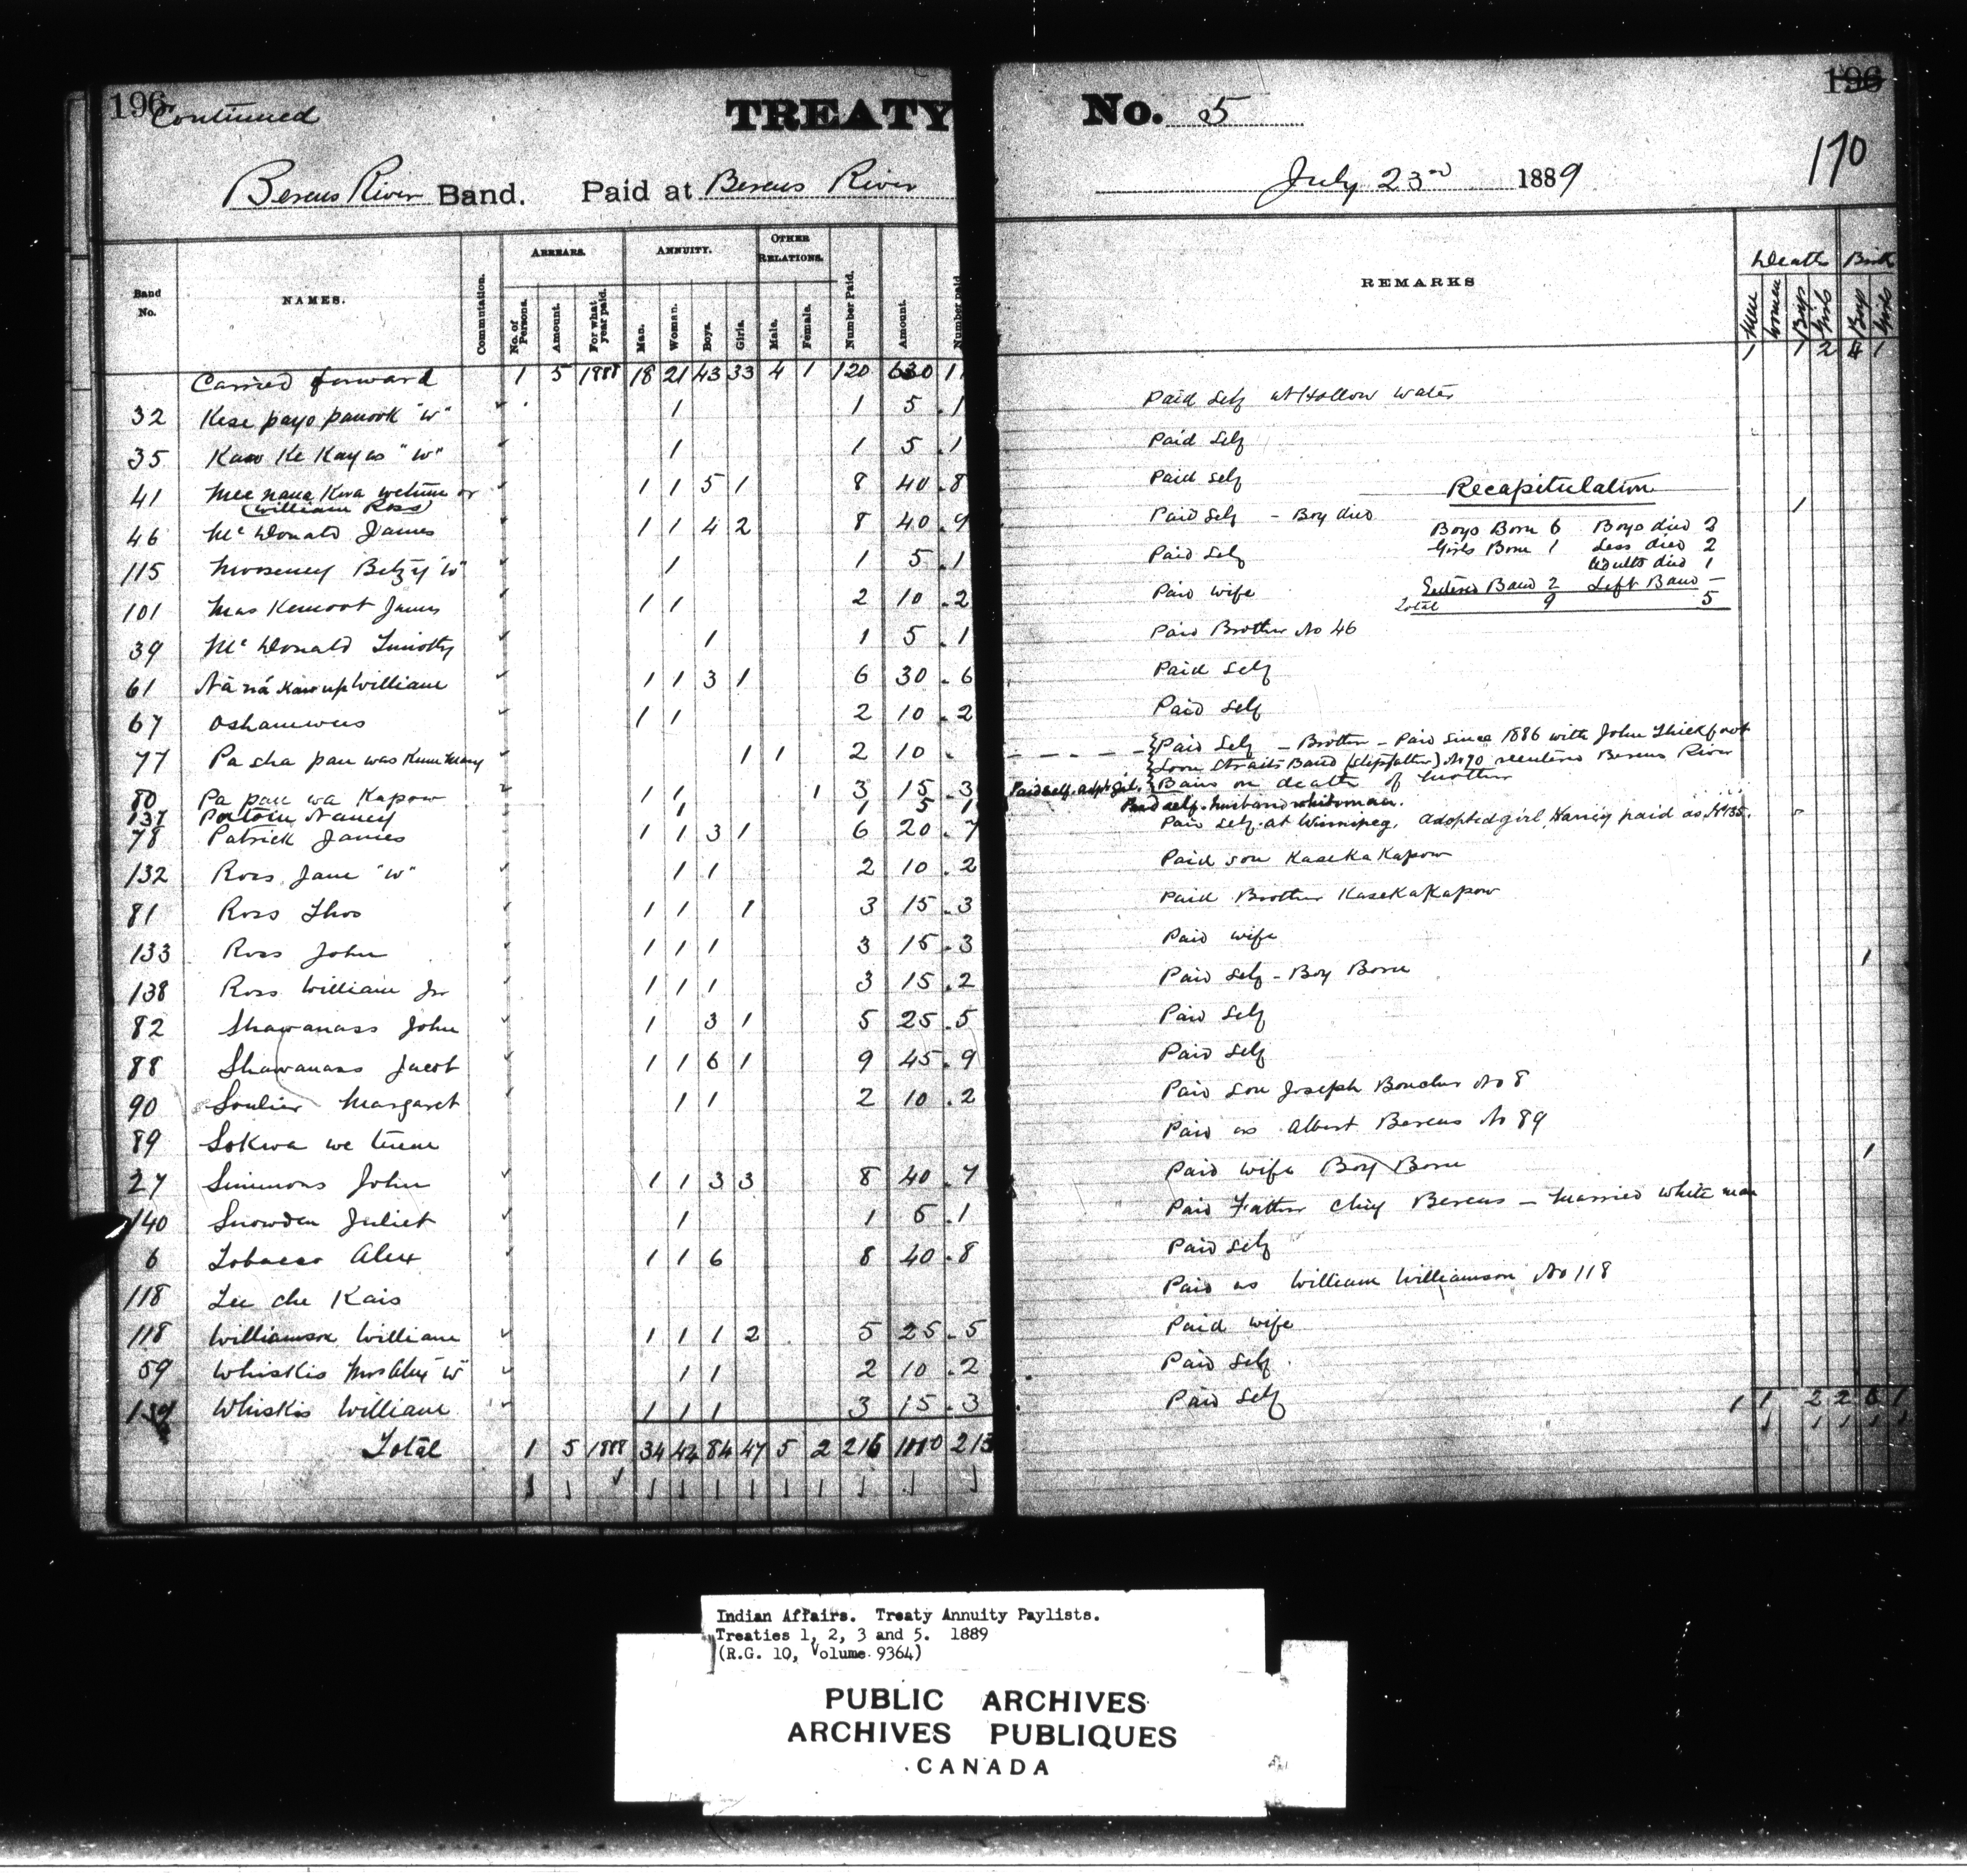 196 Continued TREATY No. 5 196
170
Berens River Band. Paid at Berens River July 23rd 1889
Band No. NAMES. Commutation. ARREARS. ANNUITY. OTHER RELATIONS. Number Paid. Amount. Number paid REMARKS Death Birth
No. of Persons. Amount. For what year paid. Man. Woman. Boys. Girls. Male. Female. Men Women Boys Girls Boys Girls
Carried forward 1 5 1888 18 21 43 33 4 1 120 630 11 1 1 2 4 1
32 Kese payo panook "W" 1 1 5 1 Paid Self at Hollow Water
35 Kaw Ke Kay as "W" 1 1 5 1 Paid Self
41 Mee nana Kwa wetum or 1 1 5 1 8 40 8 Paid Self Recapitulation
(William Ross)
46 McDonald James 1 1 4 2 8 40 9 Paid Self - Boy died 1
Boys Born 6 Boys died 2
Girls Born 1 died 2
115 Betzy "W" 1 1 5 1 Paid Self
Adults died 1
Entered Band 2 Left Band -
Total 9 5
101 Mas Kemoot James 1 1 2 10 2 Paid wife
39 McDonald Timothy 1 1 5 1 Paid Brother No 46
61 Nā nā kawup William 1 1 3 1 6 30 6 Paid Self
67 Oshamwus 1 1 2 10 2 Paid Self
77 Pa sha pan was Kum Mary 1 1 2 10 Paid Self - Brother - Paid since 1886 with John Thickfoot
Loon Straits Band (stepfather) No 90 reentered Berens River
Band on death of mother
80 Pa pau wa Kapow 1 1 1 3 15 3 Paid self. adpt. girl.
137 Nancy 1 1 5 1 Paid self. husband whiteman.
78 Patrick James 1 1 3 1 6 20 7 Paid Self at Winnipeg. adopted girl, paid as No 135.
132 Ross Jane "W" 1 1 2 10 2 Paid son KaseKaKapow
81 Ross Thos 1 1 1 3 15 3 Paid Brother KaseKaKapow
133 Ross John 1 1 1 3 15 3 Paid wife
138 Ross William Jr 1 1 1 3 15 2 Paid Self - Boy Born 1
82 Shawanass John 1 3 1 5 25 5 Paid Self
88 Shawanass Jacob 1 1 6 1 9 45 9 Paid Self
90 Soulier Margaret 1 1 2 10 2 Paid son Joseph Boucher No 8
89 Sokwa we tum Paid as Albert Berens No 89
27 Simmons John 1 1 3 3 8 40 7 Paid wife Boy Born 1
140 Snowden Juliet 1 1 5 1 Paid Father Chief Berens - Married white man
6 Tobacco Alex 1 1 6 8 40 8 Paid Self
118 Tee che Kais Paid as William Williamson No 118
118 Williamson William 1 1 1 2 5 25 5 Paid wife
59 Whiskis Mrs Alex "W" 1 1 2 10 2 Paid Self
Whiskis William 1 1 1 3 15 3 Paid Self
Total 1 5 1888 34 42 84 47 5 2 216 1110 213 1 1 2 2 6 1
Indian Affairs. Treaty Annuity Paylists.
Treaties 1, 2, 3 and 5. 1889
(R.G. 10, Volume 9364)
PUBLIC ARCHIVES
ARCHIVES PUBLIQUES
CANADA